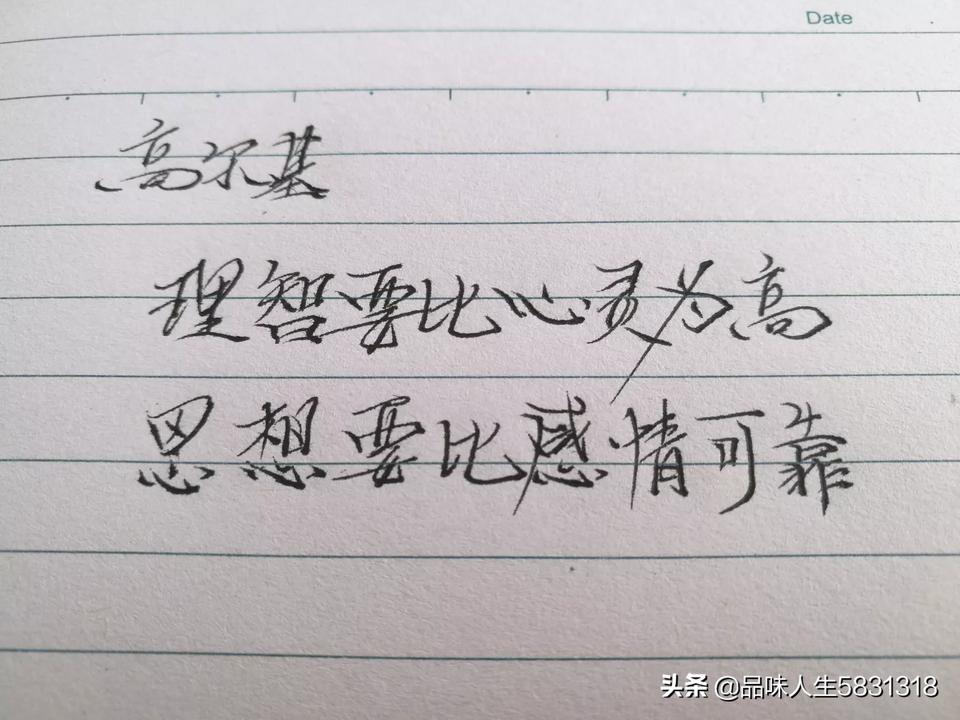 Date
高尔基
理智要比心灵为高
思想要比感情可靠
头条 @品味人生5831318